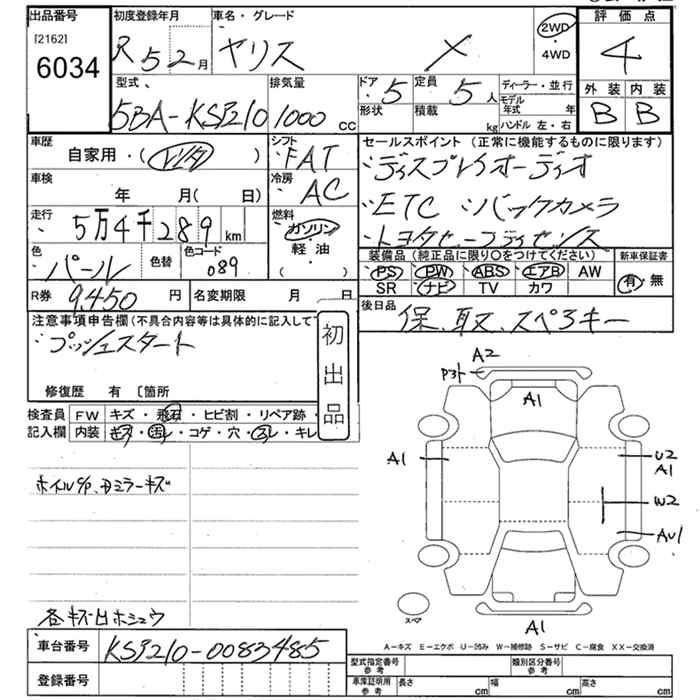 出品番号 初度登録年月 車名・グレード 2WD 評価点
[2162]
6034
R 5 2月 ヤリス X ・4WD 4
型式 排気量 ドア 5 定員 5人 ディーラー・並行 外装 内装
形状 積載 kg モデル年式 年
5BA-KSP210 1000cc ハンドル 左・右 B B
車歴 シフト セールスポイント(正常に機能するものに限ります)
自家用・(レンタ) FAT ディスプレイオーディオ
車検 冷房
年 月(日) AC ETC バックカメラ
走行 燃料
5万4千289km ガソリン トヨタセーフティセンス
軽油
( )
色 パール 色替 色コード 089
装備品(純正品に限り○をつけてください) 新車保証書
PS PW ABS エアB AW 有・無
SR ナビ TV カワ
R券 9,450円 名変期限 月 日
後日品 保、取说、スペアキー
注意事項申告欄(不具合内容等は具体的に記入して
プッシュスタート
初出品
修復歴 有 〔箇所
検査員 FW キズ・飛石・ヒビ割・リペア跡・
記入欄 内装 キズ・汚レ・コゲ・穴・スレ・キレ
A2
Pスト
A1
A1
U2
A1
W2
AU1
スペア
A1
ホイルS/P、Dミラーキズ
各キズ凹ホシュウ
A-キズ E-エクボ U-凹み W-補修跡 S-サビ C-腐食 XX-交換済
車台番号 KSP210-0083485
型式指定番号 参考 類別区分番号 参考
登録番号
車庫証明用 参考 長さ cm 幅 cm 高さ cm